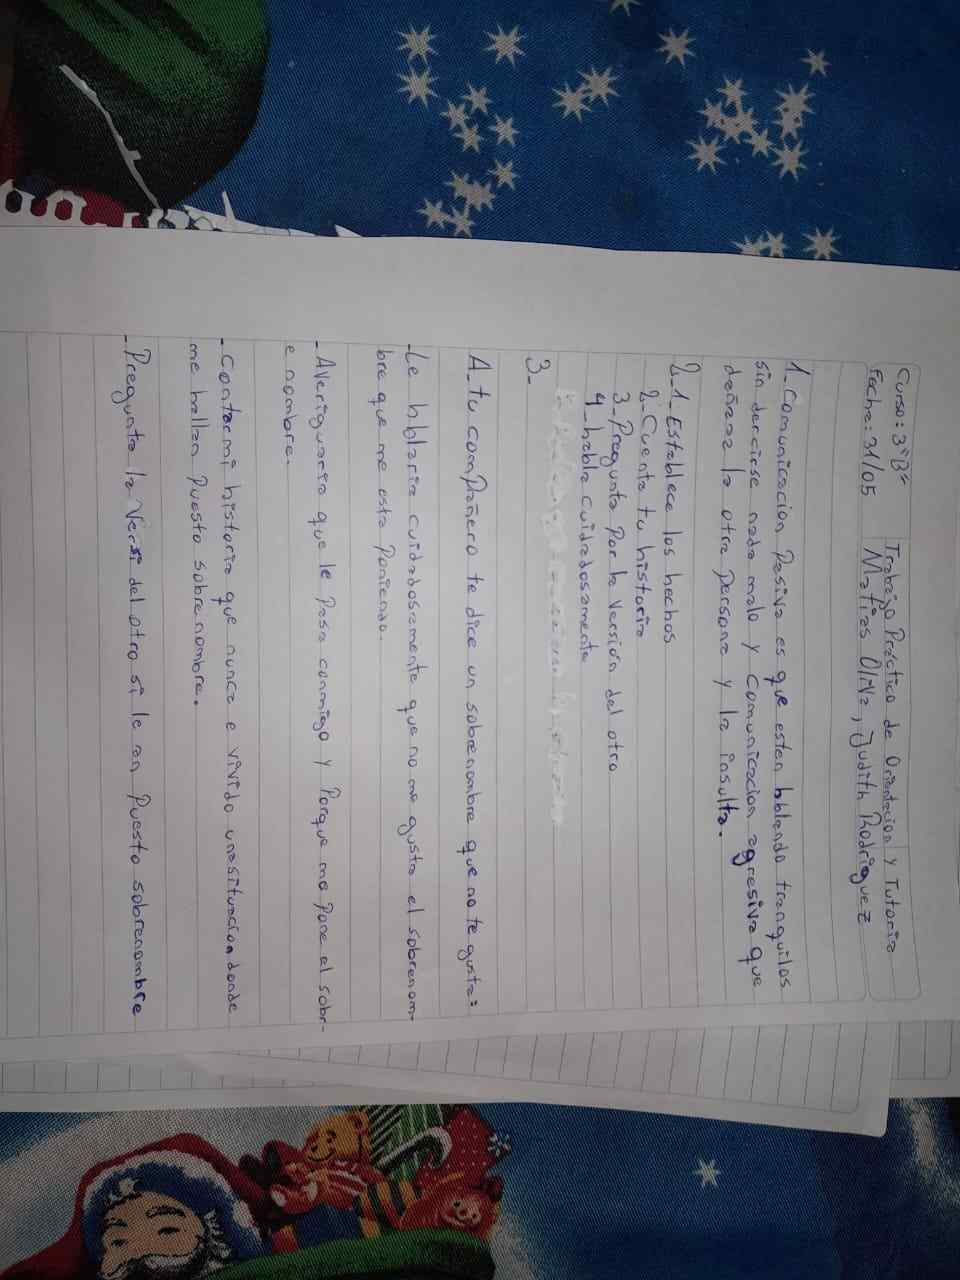 Curso: 3°B" Trabajo Práctico de Orientacion y Tutoria
Fecha: 31/05 Matias Oliva, Judith Rodriguez
1_Comunicacion Pasiva es que esten hblando tranquilos
sin dercirse nada malo y comunicacion agresiva que
dañaaz la otra persona y la insulta.
2_1_Establece los hechos
2_Cuenta tu historia
3_Pregunta por la versión del otro
4_habla cuidadosamente
3_
A_tu compañero te dice un sobrenombre que no te gusta:
-Le hblaria cuidadosamente que no me gusta el sobrenom-
bre que me esta Poniendo.
-Averiguaria que le Pasa conmigo y Porque me Pone el sobr-
e nombre.
-Contar mi historia que nunca e vivido una situacion donde
me hallan Puesto sobre nombre.
-Pregunta la Versi del otro si le an Puesto sobrenombre